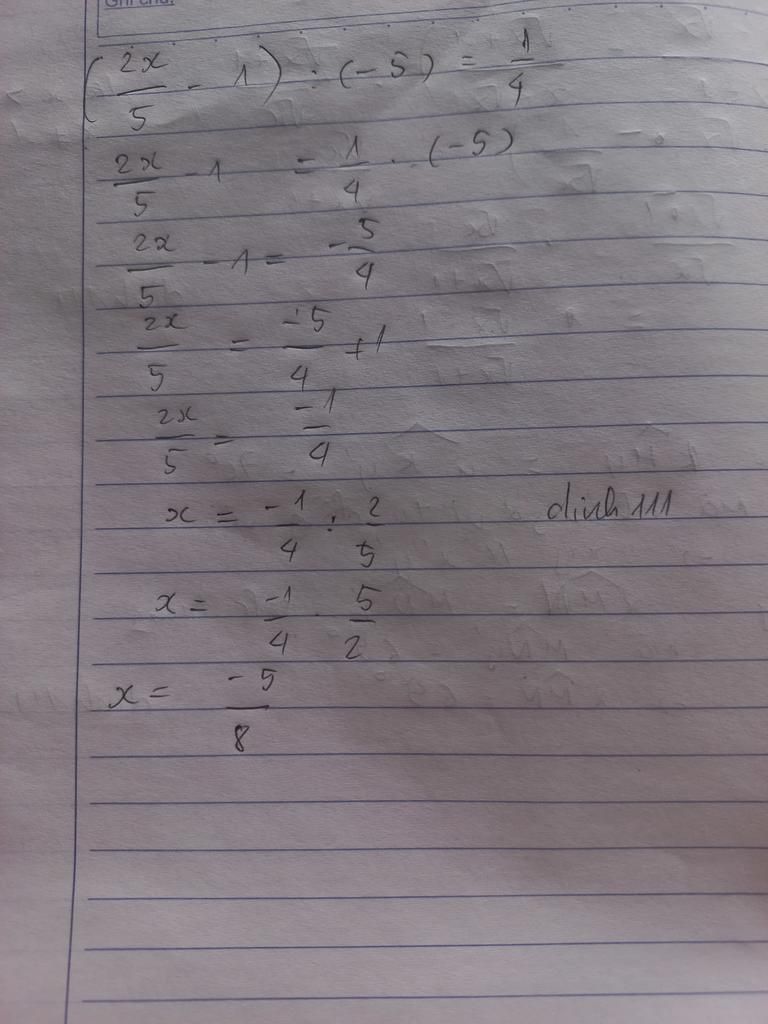 Ghi chú:
(2x/5 - 1) : (-5) = 1/4
2x/5 - 1 = 1/4 . (-5)
2x/5 - 1 = -5/4
2x/5 = -5/4 + 1
2x/5 = -1/4
x = -1/4 : 2/5 dinh 111
x = -1/4 . 5/2
x = -5/8